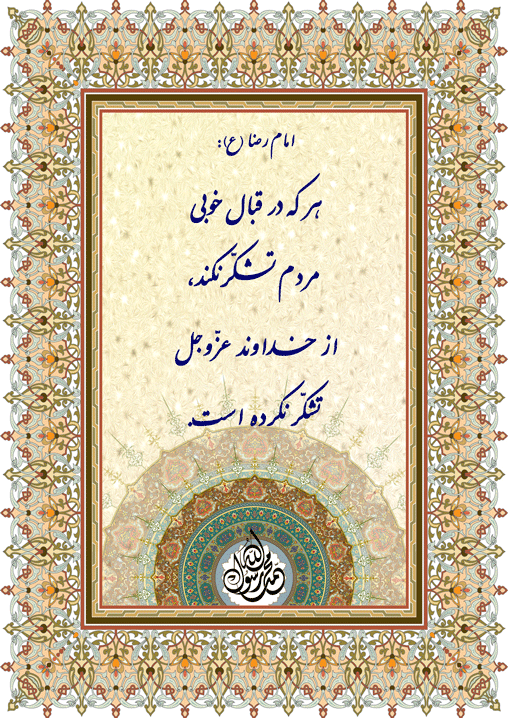 امام رضا (ع):
هر که در قبال خوبی
مردم تشکّر نکند،
از خداوند عزّوجل
تشکّر نکرده است.
محمد رسول الله